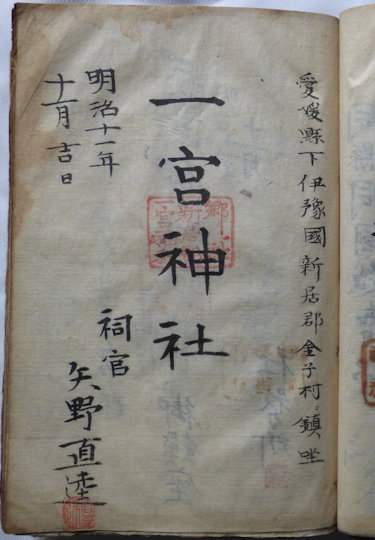 愛媛縣下伊豫國新居郡金子村鎮坐
一宮神社
明治十一年
十一月吉日
祠官
矢野直